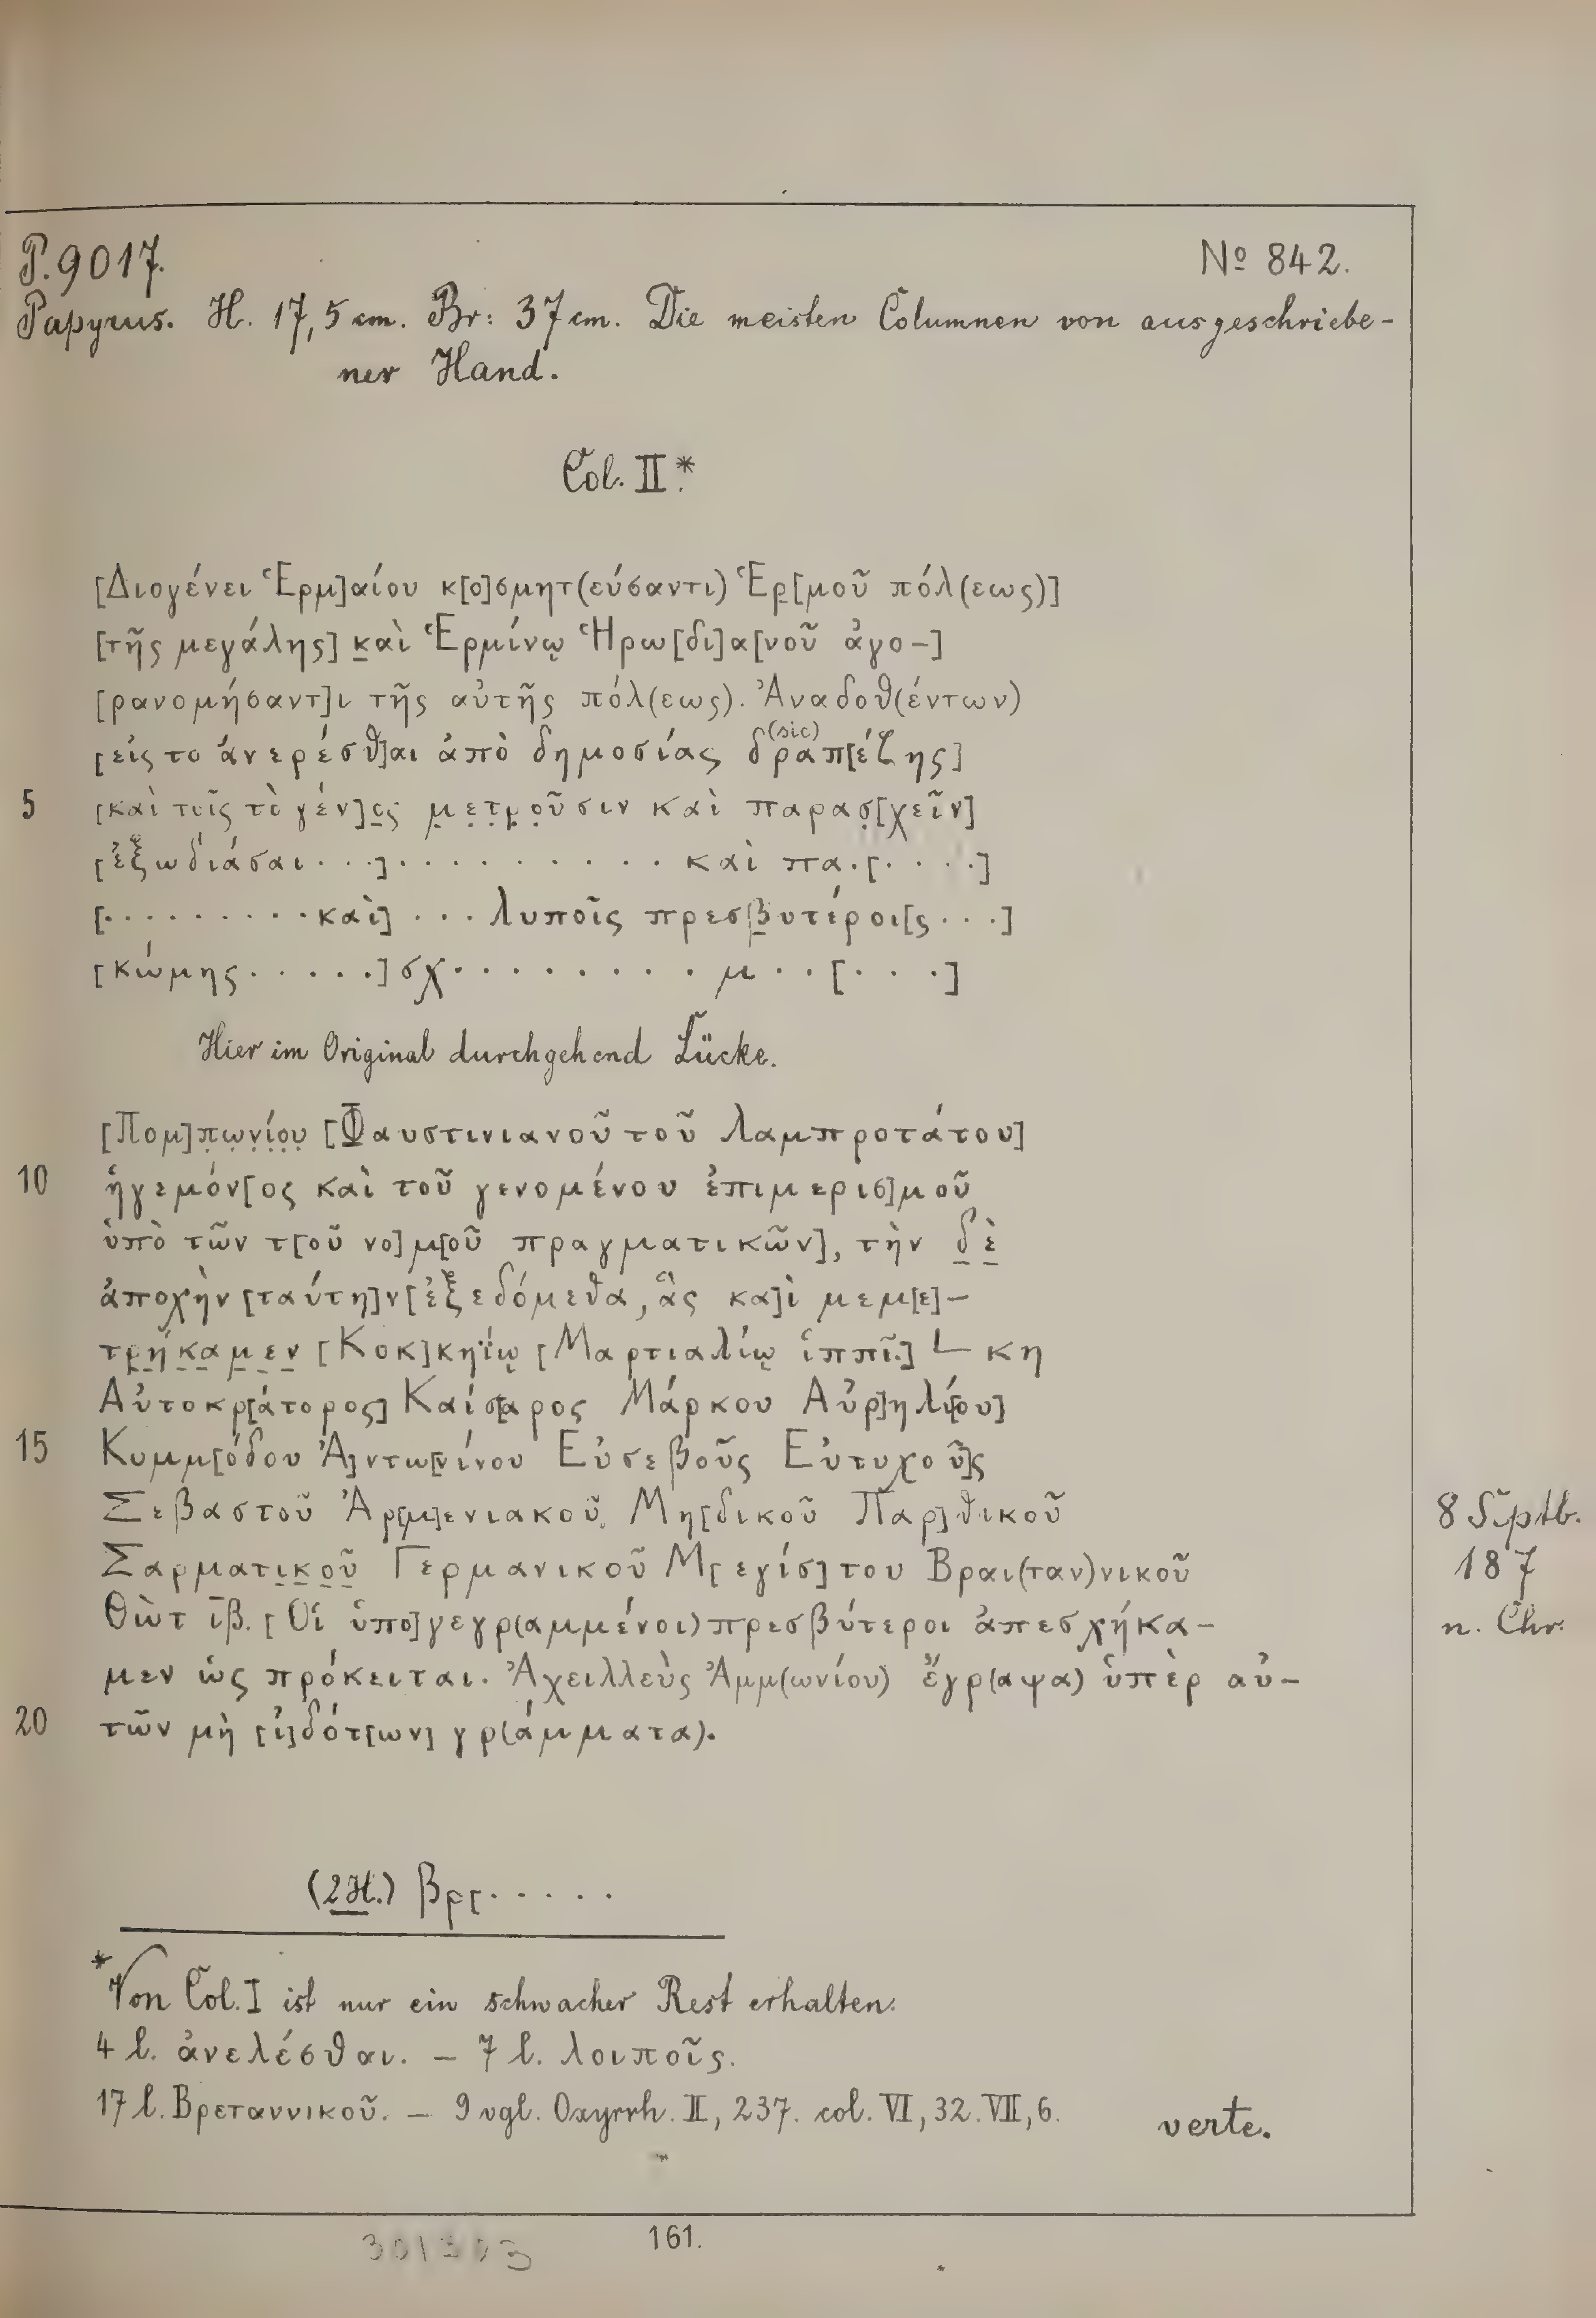 P. 9017.
Nº 842.
Papyrus. H. 17,5 cm. Br: 37 cm. Die meisten Columnen von ausgeschriebe-
ner Hand.
Col. II.*
[Διογένει Ἑρμ]αίου κ[ο]σμητ(εύσαντι) Ἑρ̣[μοῦ πόλ(εως)]
[τῆς μεγάλης] κ̣αὶ Ἑρμίνῳ Ἡρω[δι]α[νοῦ ἀγο-]
[ρανομήσαντ]ι τῆς αὐτῆς πόλ(εως). Ἀναδοθ(έντων)
[εἰς το ἀνερέσθ]αι ἀπὸ δημοσίας δραπ[έζης] (sic)
5 [καὶ τοῖς τὸ γέν]ο̣ς μ̣ε̣τ̣ρ̣ο̣ῦσιν καὶ παρασ̣[χεῖν]
[ἐξωδιάσαι . . .] . . . . . . . . . . καὶ πα . [. . . .]
[. . . . . . . . . καὶ] . . . λυποῖς πρεσβ̣υτέροι[ς . . .]
[κώμης . . . . .] σχ . . . . . . . . . μ . . [. . . .]
Hier im Original durchgehend Lücke.
[Πομ]π̣ω̣ν̣ί̣ο̣υ̣ [Φαυστινιανοῦ τοῦ λαμπροτάτου]
10 ἡγεμόν[ος καὶ τοῦ γενομένου ἐπιμερισ]μοῦ
ὑπὸ τῶν τ[οῦ νο]μ[οῦ πραγματικῶν], τὴν δ̣ὲ̣
ἀποχὴν [ταύτη]ν [ἐξεδόμεθα, ἃς κα]ὶ μεμ[ε]-
τρ̣ή̣κ̣α̣μ̣ε̣ν̣ [Κοκ]κηΐῳ [Μαρτιαλίῳ ἱππῖ.] L κη
Αὐτοκρ[άτορος] Καίσ[α]ρος Μάρκου Αὐρ]ηλί[ου]
15 Κυμμ[όδου Ἀ]ντω[ν]ίνου Εὐσεβοῦς Εὐτυχοῦ]ς
Σεβαστοῦ Ἀρ[μ]ενιακοῦ Μη[δικοῦ Παρ]θικοῦ
Σαρματι̣κ̣ο̣ῦ̣ Γερμανικοῦ Μ[εγίσ]του Βραι(ταν)νικοῦ
8 Septb.
187
n. Chr.
Θὼτ ιβ. [Οἱ ὑπο]γεγρ(αμμένοι) πρεσβύτεροι ἀπεσχήκα-
μεν ὡς πρόκειται. Ἀχειλλεὺς Ἀμμ(ωνίου) ἔγρ(αψα) ὑπὲρ αὐ-
20 τῶν μὴ [ἰ]δότ[ων] γρ(άμματα).
(2 H.) βρ[. . . . .
* Von Col. I ist nur ein schwacher Rest erhalten.
4 l. ἀνελέσθαι. — 7 l. λοιποῖς.
17 l. Βρεταννικοῦ. — 9 vgl. Oxyrrh. II, 237. col. VI, 32. VII, 6.
verte.
161.